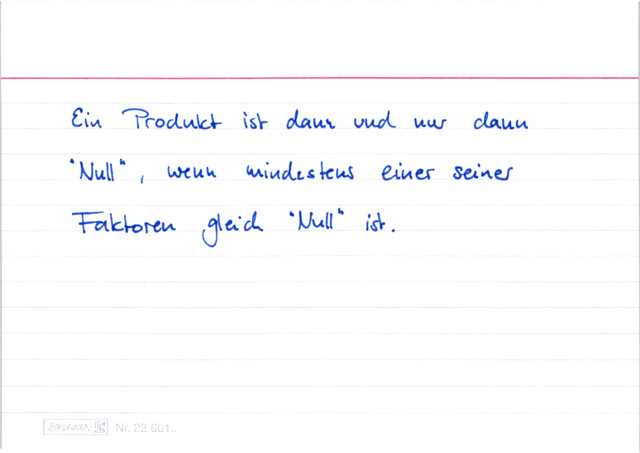 Ein Produkt ist dann und nur dann
"Null", wenn mindestens einer seiner
Faktoren gleich "Null" ist.
BRUNNEN Nr. 22 601..